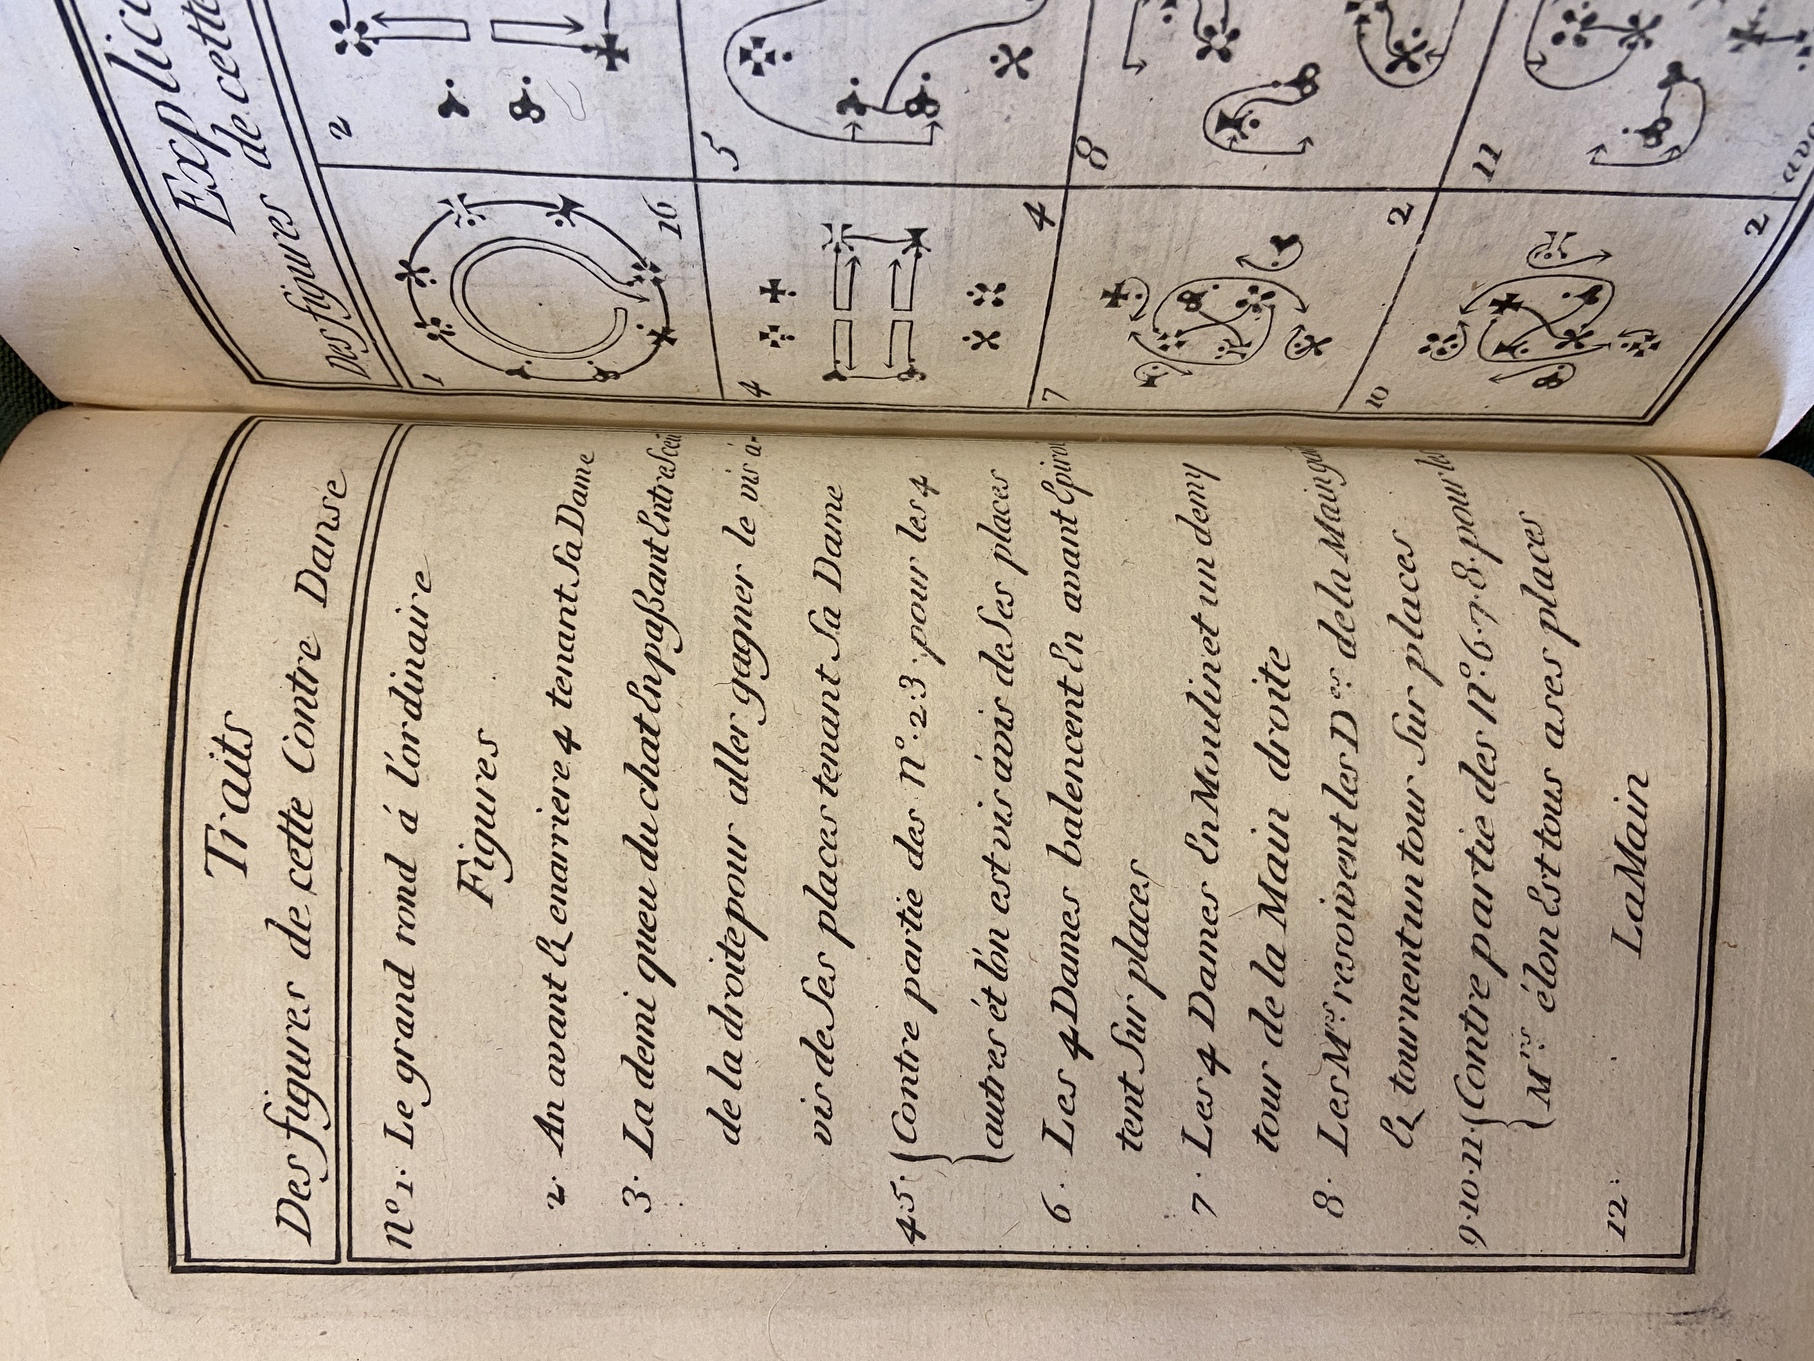 Traits
Des figures de cette Contre Danse
No 1. Le grand rond á l'ordinaire
Figures
2. An avant & enarriere 4 tenant Sa Dame
3. La demi queu du chat En paßant Entre
de la droite pour aller gagner le vis a-
vis de Ses places tenant Sa Dame
4 5. Contre partie des no. 2 3. pour les 4
autres ét lón est vis ávis de Ses places
6. Les 4 Dames balencent En avant
tent Sur places
7. Les 4 Dames En Moulinet un demy
tour de la Main droite
8. Les Mrs. resoivent les Des. de la Main
& tournent un tour Sur places
9. 10. 11. Contre partie des no. 6. 7. 8. pour les
Mrs. élon Est tous a ses places
12. La Main
de cette
Des figures
1
16
2
4
4
5
7
2
8
10
2
11